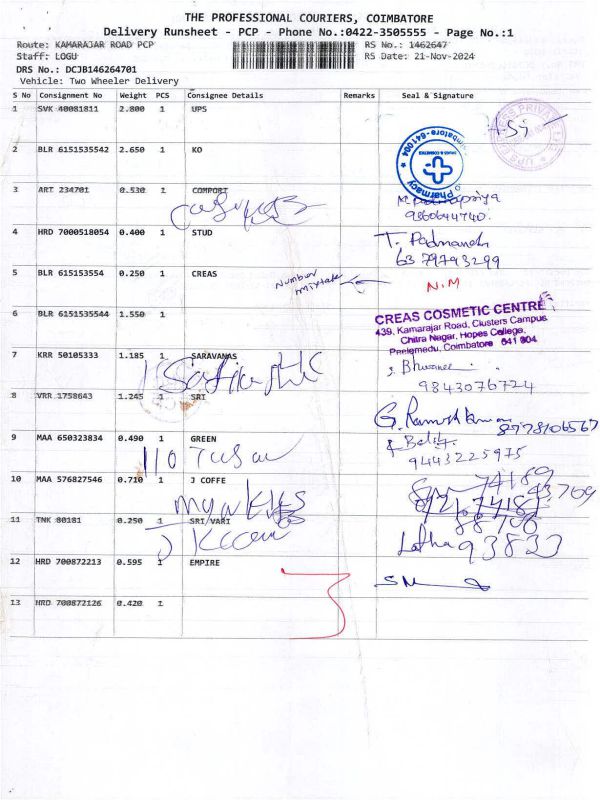 THE PROFESSIONAL COURIERS, COIMBATORE
Delivery Runsheet - PCP - Phone No.:0422-3505555 - Page No.:1
Route: KAMARAJAR ROAD PCP
RS No.: 1462647
Staff: LOGU
RS Date: 21-Nov-2024
DRS No.: DCJB146264701
Vehicle: Two Wheeler Delivery
S No Consignment No Weight PCS Consignee Details Remarks Seal & Signature
1 SVK 40081811 2.800 1 UPS
2 BLR 6151535542 2.650 1 KO
3 ART 234701 0.530 1 COMPORT
9860644740.
4 HRD 7000518054 0.400 1 STUD
T. Padmanesh
6379793299
5 BLR 615153554 0.250 1 CREAS
Number mixtake
N.M
6 BLR 6151535544 1.550 1
CREAS COSMETIC CENTRE
439, Kamarajar Road, Clusters Campus
Chitra Nagar, Hopes College,
Peelamedu, Coimbatore 641 004
7 KRR 50105333 1.185 1 SARAVANAS
9843076724
8 VRR 1758643 1.245 1 SRI
8978106567
9 MAA 650323834 0.490 1 GREEN
9443225975
10 MAA 576827546 0.710 1 J COFFE
11 TNK 80181 0.250 1 SRI VARI
Latha 93833
12 HRD 700872213 0.595 1 EMPIRE
13 HRD 700872126 0.420 1